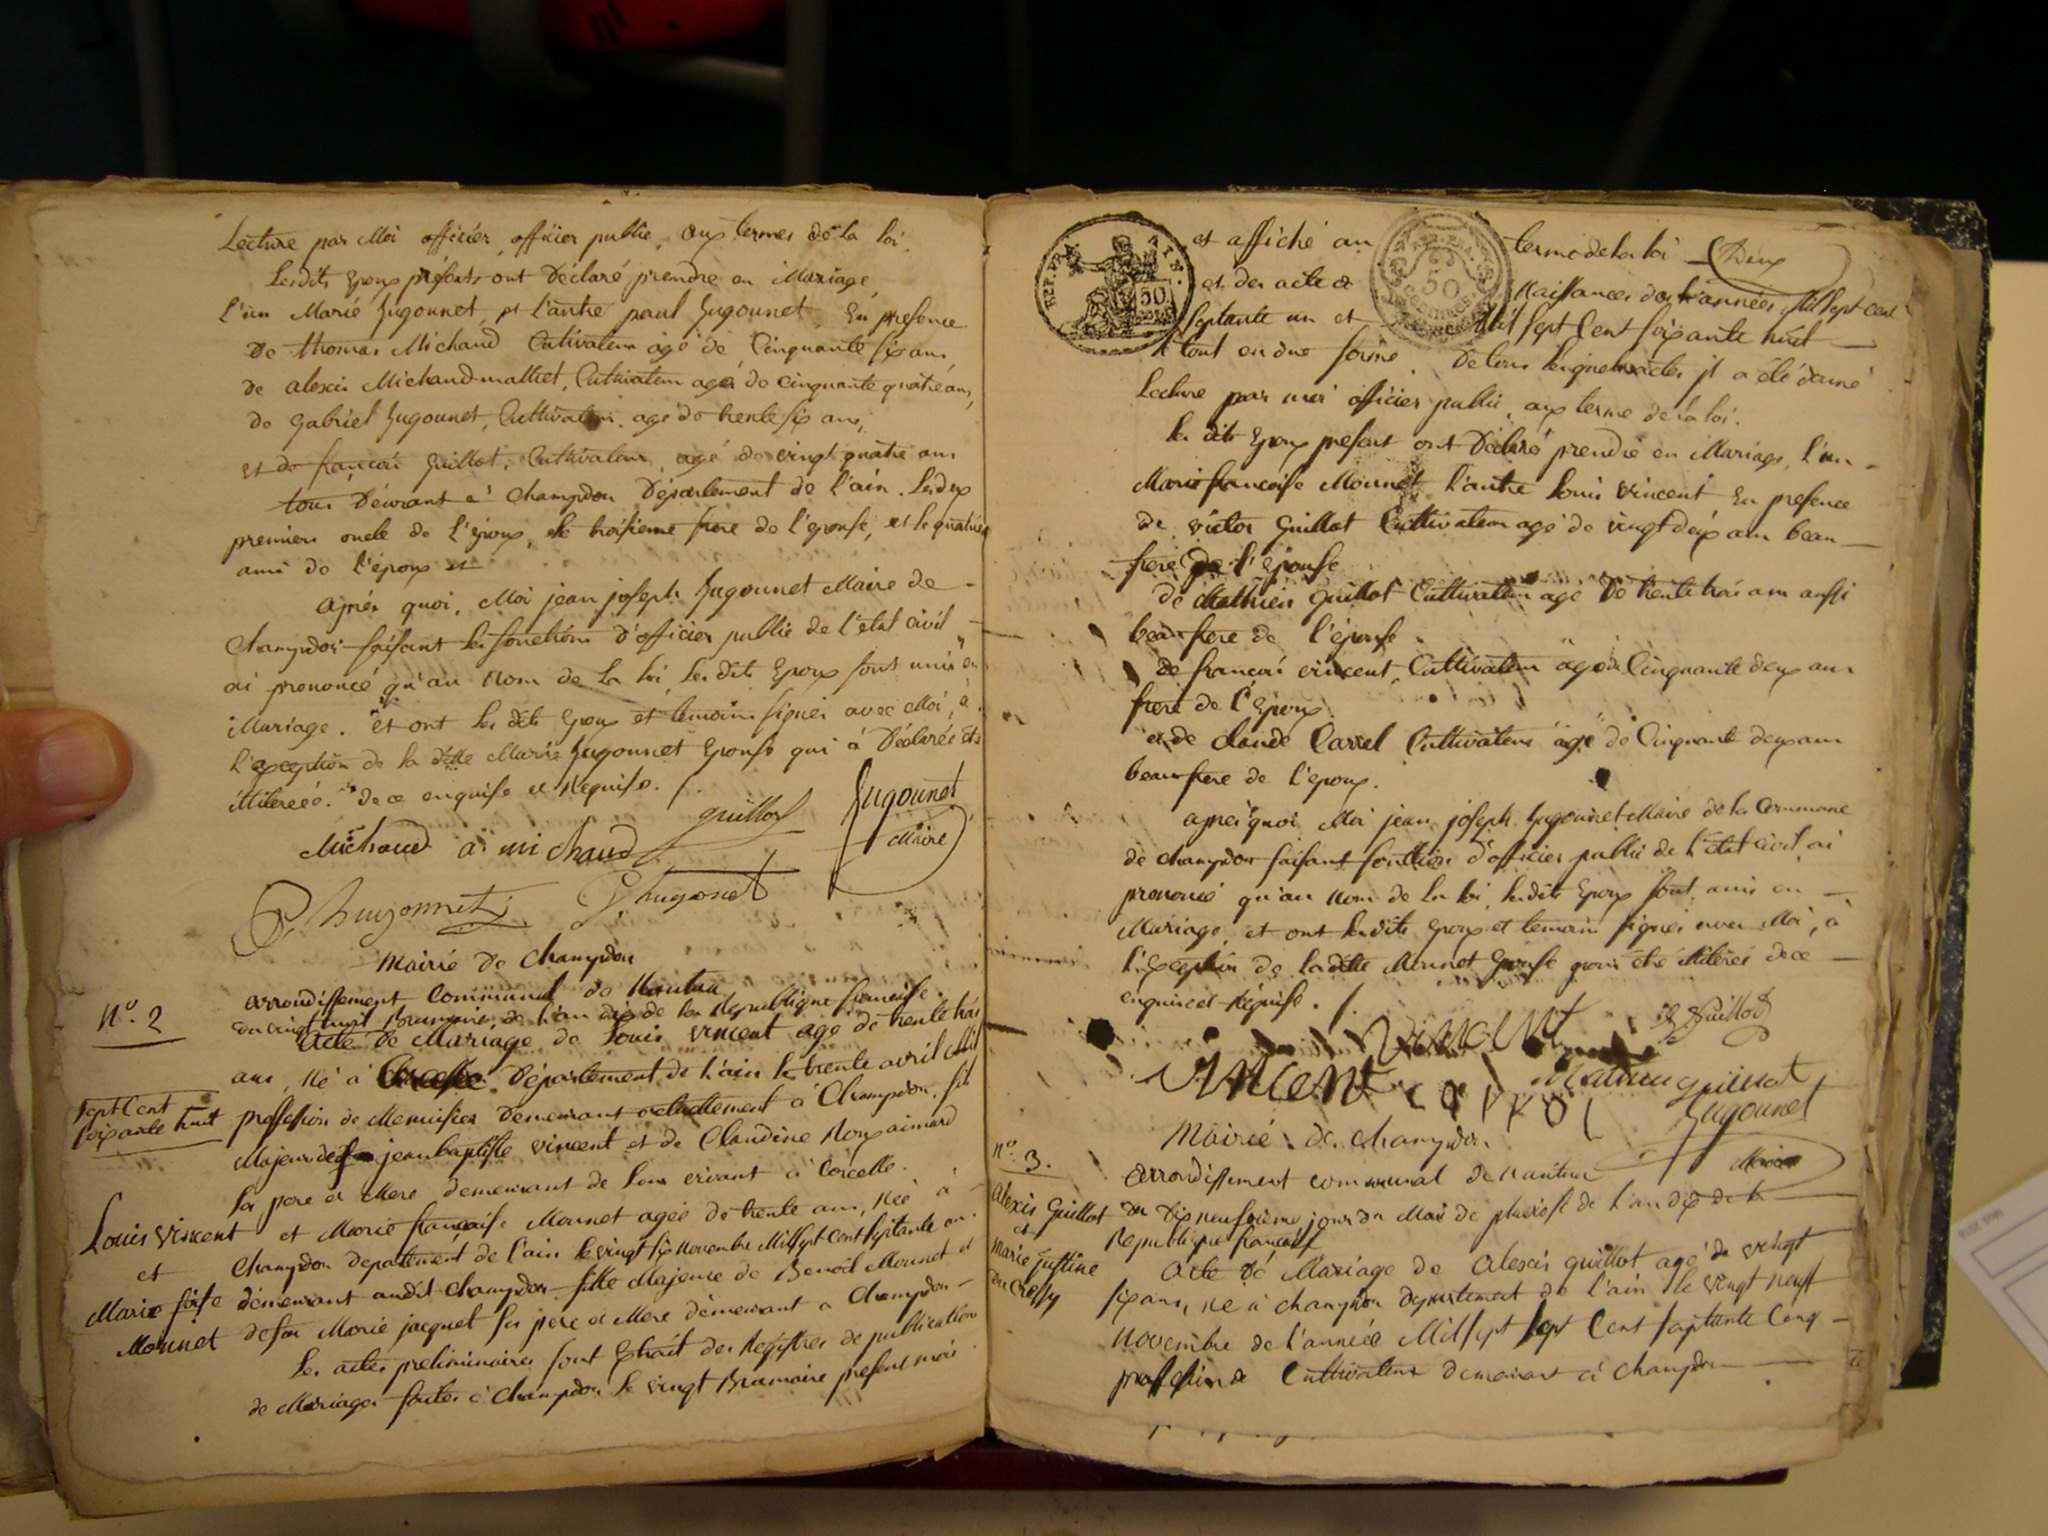 Lecture par Moi officier, officier public, aux termes de la loi.
Lesdits Epoux présents ont Déclaré prendre en Mariage,
l'un Marie hugonnet, et l'autre paul hugonnet. En presence
De thomas Michaud Cultivateur agé de Cinquante six ans,
de alexis Michaud mallet, Cultivateur agé de cinquante quatre ans,
de gabriel hugounet, Cultivateur, agé de trente six ans,
et de françois guillot, Cultivateur, agé de vingt quatre ans
tous Demeurant à Champdor Département de l'ain. Les deux
premiers oncle de l'époux, le troisieme frere de l'epouse, et le quatrieme
ami de l'époux et
Après quoi, Moi jean joseph hugounet Maire de
Champdor faisant les fonctions d'officier public de l'état civil
ai prononcé qu'au Nom de la loi, les dits Epoux sont unis en
Mariage. et ont les dits Epoux et temoins signés avec Moi, à
l'exception de la ditte Marie hugounet Epouse qui à Déclarée être
illiterée. de ce enquise et Requise. /.
guillot hugounet
Maire
Michaud a michaud
P. hugonnet G hugonet
Mairie de Champdor
arrondissement Communal de Nantua
N°. 2
du vingt huit Brumaire, de l'an dix de la Republique française.
Acte de Mariage de Louis vincent agé de trente trois
ans, Né à Département de l'ain le trente avril Mil
sept Cent
soixante huit
profession de Menuisier Demeurant actuellement à Champdor, fils
Majeur de jean baptiste vincent et de Claudine Roux aimard
ses pere et Mere demeurant de leur vivant à Corcelle.
Louis Vincent
et
Marie frse
Monnet
et Marie française Monnet agée de trente ans, Née à
Champdor departement de l'ain le vingt six Novembre Mil sept Cent septante un
demeurant audit Champdor fille Majeure de Benoit Monnet et
de feu Marie jacquet ses pere et Mere demeurant a Champdor
Les actes preliminaires sont Extrait des Registres de publication
de Mariages faites à Champdor le vingt Brumaire present mois
REP. FRA. 50 CENT.
REP. FRA. 50 CENTIMES
et affiché au terme de la loi Deux
et des acte de Naissances de l'années Mil sept cent
septante un et Mil sept Cent soixante huit
le tout en due forme. De tous lesquels actes il a été donné
Lecture par moi officier public, aux terme de la loi.
les dits Epoux present ont Déclaré prendre en Mariage, l'un
Marie francoise Monnet l'autre Louis vincent En presence
de victor guillot Cultivateur agé de vingt deux ans beau
frere de l'épouse
de Mathieu guillot Cultivateur agé De trente trois ans aussi
beau frere de l'épouse.
de françois vincent, Cultivateur agé de Cinquante deux ans
frere de l'Epoux.
et de claude Carrel Cultivateur agé de Cinquante deux ans
beau frere de l'epoux.
après quoi Moi jean joseph hugounet Maire de la Commune
de champdor faisant fonction d'officier public de l'état civil, ai
prononcé qu'au Nom de la loi, lesdits Epoux sont unis en
Mariage, et ont lesdits Epoux et temoins signés avec Moi, à
l'Exception de laditte Monnet Epouse pour être illiterée de ce
enquise et Requise. /.
VINCENT guillot
VINCENT Mathieu guillot
hugounet
Maire
Mairie de champdor
N°. 3.
arrondissement communal de nantua
Alexis guillot
et
Marie justine
du Cressy
du Dix neufvieme jour du Mois de pluviose de l'an dix de la
Republique française
Acte De Mariage de alexis guillot agé de vingt
six ans, Né à champdor departement de l'ain le vingt neuf
Novembre de l'année Mil sept sept Cent septante Cinq
profession de Cultivateur demeurant à champdor